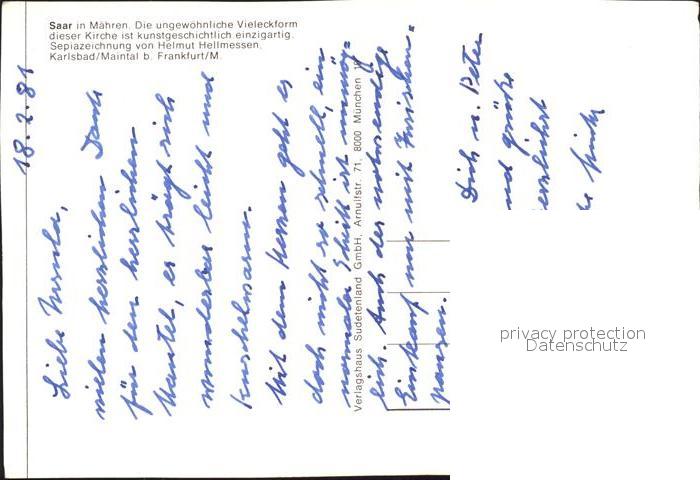 Saar in Mähren. Die ungewöhnliche Vieleckform
dieser Kirche ist kunstgeschichtlich einzigartig.
Sepiazeichnung von Helmut Hellmessen,
Karlsbad/Maintal b. Frankfurt/M.
18.2.81
Liebe Ursula,
vielen herzlichen Dank
für den herrlichen
Mantel, er trägt sich
wunderbar leicht und
kuschelwarm.
Mit dem Laufen geht es
doch nicht so schnell, ein
normaler Schritt ist unmög=
lich. Auch der notwendige
Einkauf nur mit Zwischen=
pausen.
Verlagshaus Sudetenland GmbH, Arnulfstr. 71, 8000 München 19
Dich u. Peter
und grüße
herzlichst
privacy protection
Datenschutz